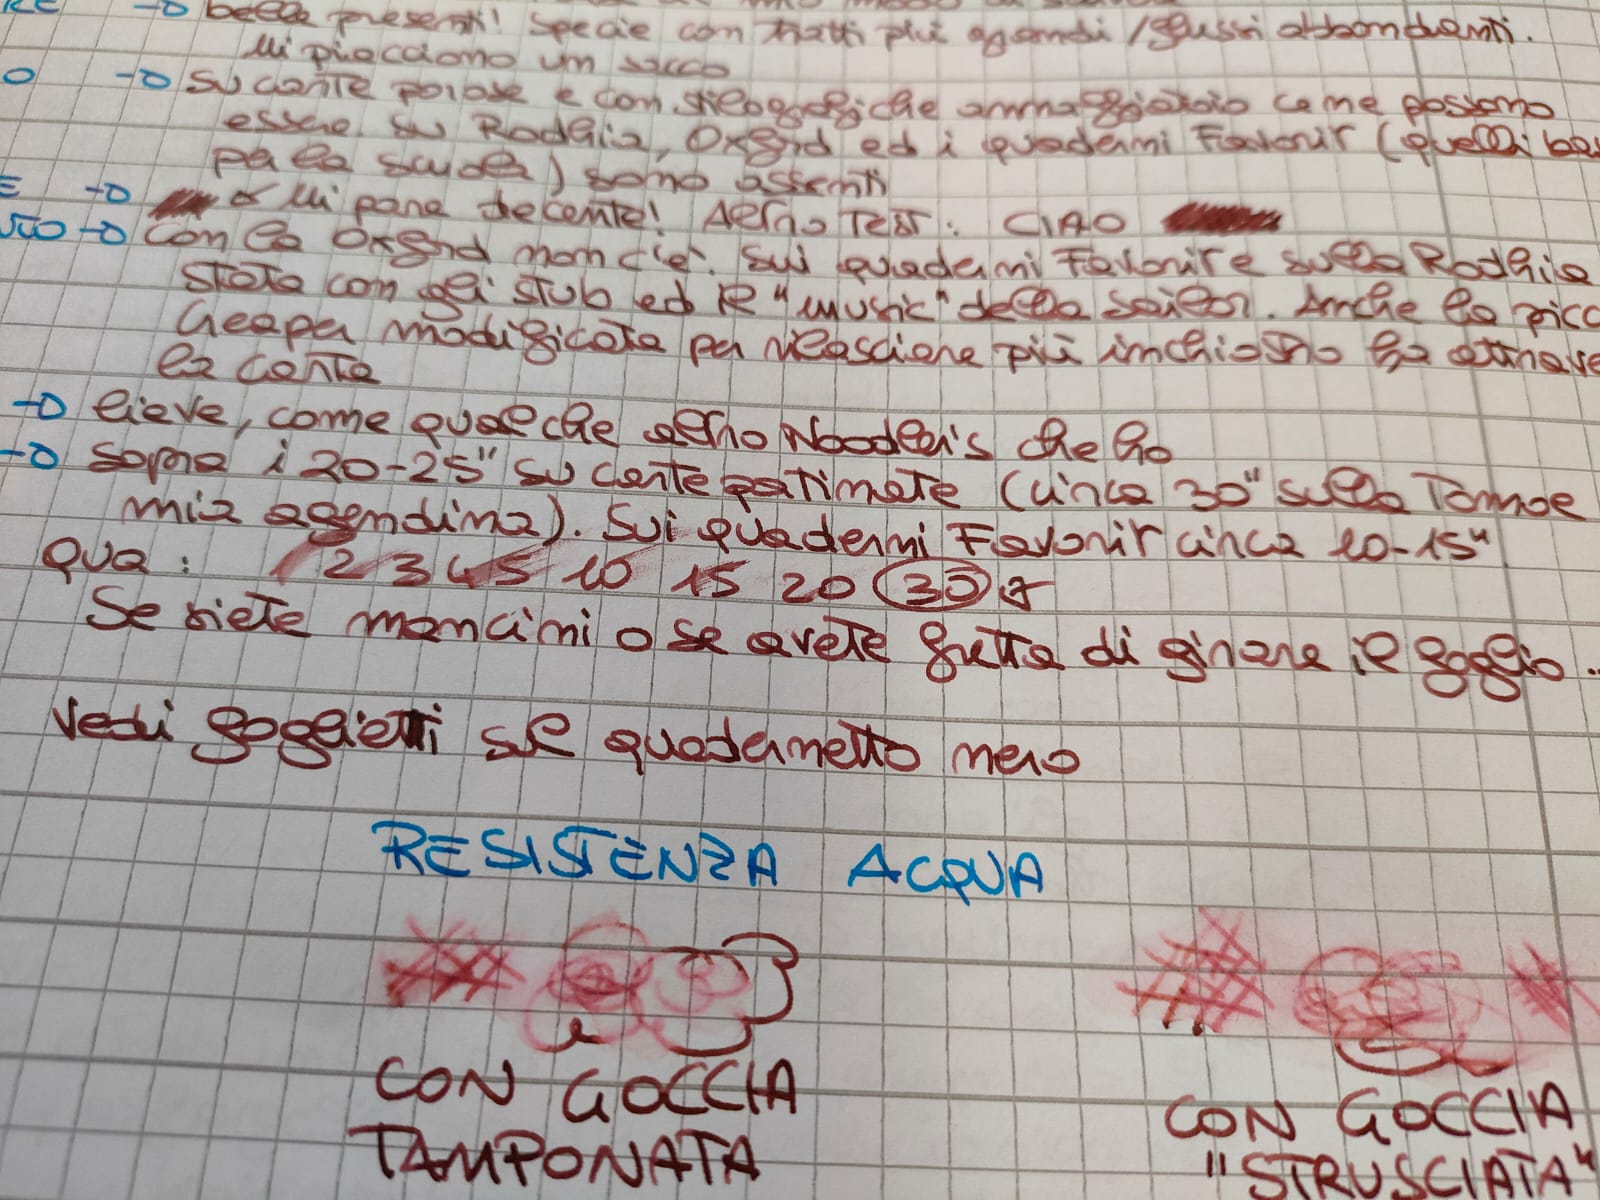 -o belle presenti! Specie con tratti più grandi/flussi abbondanti.
Mi piacciono un sacco
-o su carte porose e con stilografiche annaffiatoio come possono
essere su Rodhia, Oxford ed i quaderni Favorit (quelli
per la scuola) sono assenti
-o Mi pare decente! Altro TEST: CIAO
-o Con la Oxford non c'è. Sui quaderni Favorit e sulla Rodhia
stata con gli stub ed il "music" della Sailor. Anche la
Geapen modificata per rilasciare più inchiostro ha
la carta
-o lieve, come qualche altro Noodler's che ho
-o sopra i 20-25" su carte patinate (circa 30" sulla Tomoe
mia agendina). Sui quaderni Favorit circa 10-15"
QUA: 1 2 3 4 5 10 15 20 30
Se siete mancini o se avete fretta di girare il foglio..
Vedi foglietti sul quadernetto nero
RESISTENZA ACQUA
CON GOCCIA
TAMPONATA
CON GOCCIA
"STRUSCIATA"